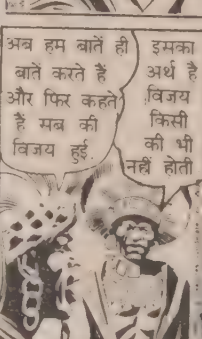 अब हम बातें ही
बातें करते हैं
और फिर कहते
हैं सब की
विजय हुई.
इसका
अर्थ है
विजय
किसी
की भी
नहीं होती